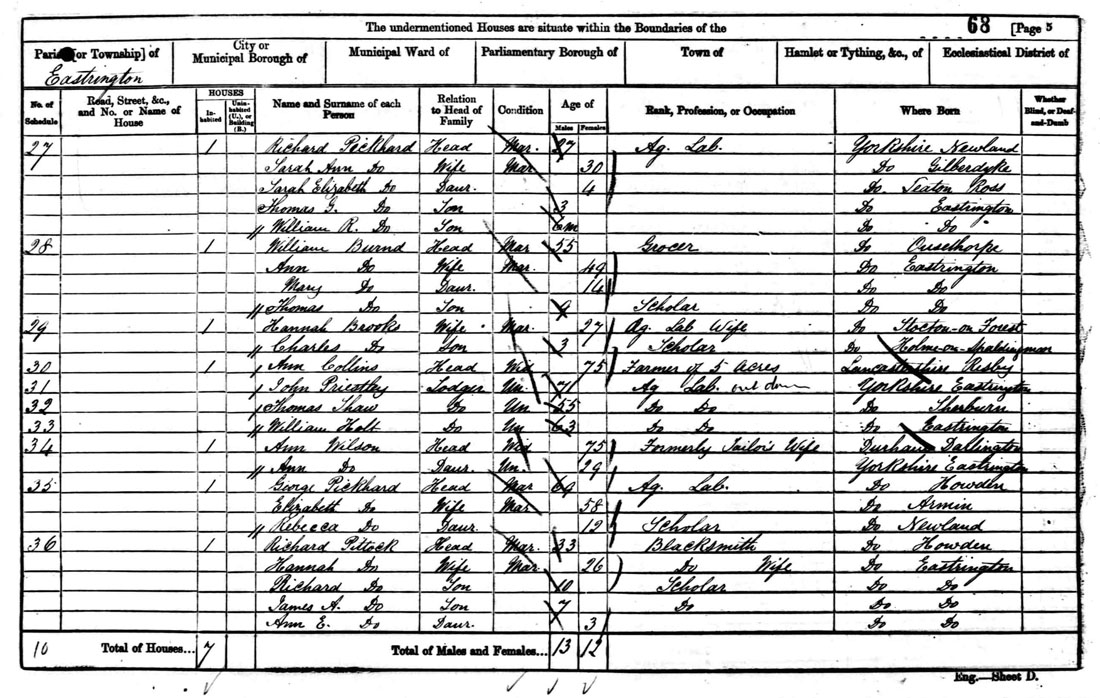 The undermentioned Houses are situate within the Boundaries of the 68 [Page 5
Parish [or Township] of City or Municipal Borough of Municipal Ward of Parliamentary Borough of Town of Hamlet or Tything, &c., of Ecclesiastical District of
Eastrington
No. of Schedule Road, Street, &c., and No. or Name of House HOUSES Inhabited Uninhabited (U.), or Building (B.) Name and Surname of each Person Relation to Head of Family Condition Age of Males Females Rank, Profession, or Occupation Where Born Whether Blind, or Deaf-and-Dumb
27 1 Richard Pickhard Head Mar. 27 Ag. Lab. Yorkshire Newland
Sarah Ann Do Wife Mar 30 Do Gilberdyke
Sarah Elizabeth Do Daur. 4 Do. Seaton Ross
Thomas G. Do Son 3 Do Eastrington
William R. Do Son 6m Do Do
28 1 William Burnd Head Mar 55 Grocer Do Ousethorpe
Ann Do Wife Mar. 49 Do Eastrington
Mary Do Daur. 14 Do Do
Thomas Do Son 9 Scholar Do Do
29 1 Hannah Brooks Wife Mar. 27 Ag. Lab Wife Do Stocton-on Forest
Charles Do Son 3 Scholar Do Holme-on-Spaldingman
30 1 Ann Collins Head Wid 75 Farmer of 5 Acres Resby
31 John Priestley Lodger Un. 71 Ag Lab Yorkshire Eastrington
32 Thomas Shaw Do Un 55 Do Do Do Sherburn
33 William Holt Do Un 63 Do Do Do Eastrington
34 1 Ann Wilson Head Wid 75 Formerly Tailor's Wife Durham Dallington
Ann Do Daur. Un. 29 Yorkshire Eastrington
35 1 George Pickhard Head Mar 69 Ag. Lab. Do Howden
Elizabeth Do Wife Mar 58 Do Armin
Rebecca Do Daur. 12 Scholar Do Newland
36 1 Richard Pittock Head Mar. 33 Blacksmith Do Howden
Hannah Do Wife Mar 26 Do Wife Do Eastrington
Richard Do Son 10 Scholar Do Do
James A. Do Son 7 Do Do Do
Ann E. Do Daur. 3 Do Do
10 Total of Houses... 7 Total of Males and Females... 13 12
Eng.—Sheet D.